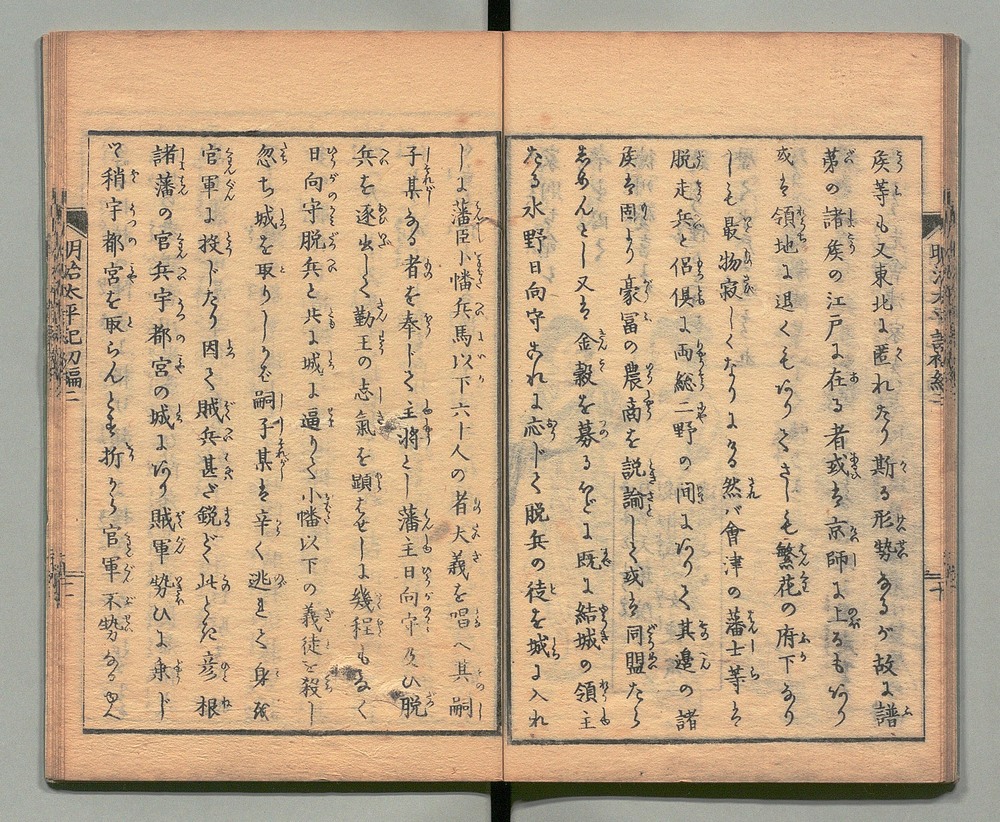 矦等も又東北に匿れたり斯る形勢なるが故に譜
第の諸矦の江戸に在る者或は京師に上るもあり
或は領地に退くもありてさしも繁花の府下なり
しも最物寂しくなりにける然バ會津の藩士等は
脱走兵と侶倶に両総二野の间にありて其邉の諸
矦は固より豪冨の農商を説論して或は同盟たら
しめんとし又は金穀を募るなどに既に結城の領主
たる水野日向守これに応じて脱兵の徒を城に入れ
しに藩臣小幡兵馬以下六十人の者大義を唱へ其嗣
子某なる者を奉じて主将とし藩主日向守及び脱
兵を逐出して勤王の志氣を顕はせしに幾程もなく
日向守脱兵と共に城に逼りて小幡以下の義徒を殺し
忽ち城を取りしかば嗣子某は辛く逃れて身を
官軍に投じたり因て賊兵甚だ鋭どく此とき彦根
諸藩の官兵宇都宮の城にあり賊軍勢ひに乗じ
て稍宇都宮を取らんとす折から官軍不勢なるゆゑ
明治太平記初編二
明治太平記初編二
十
十一